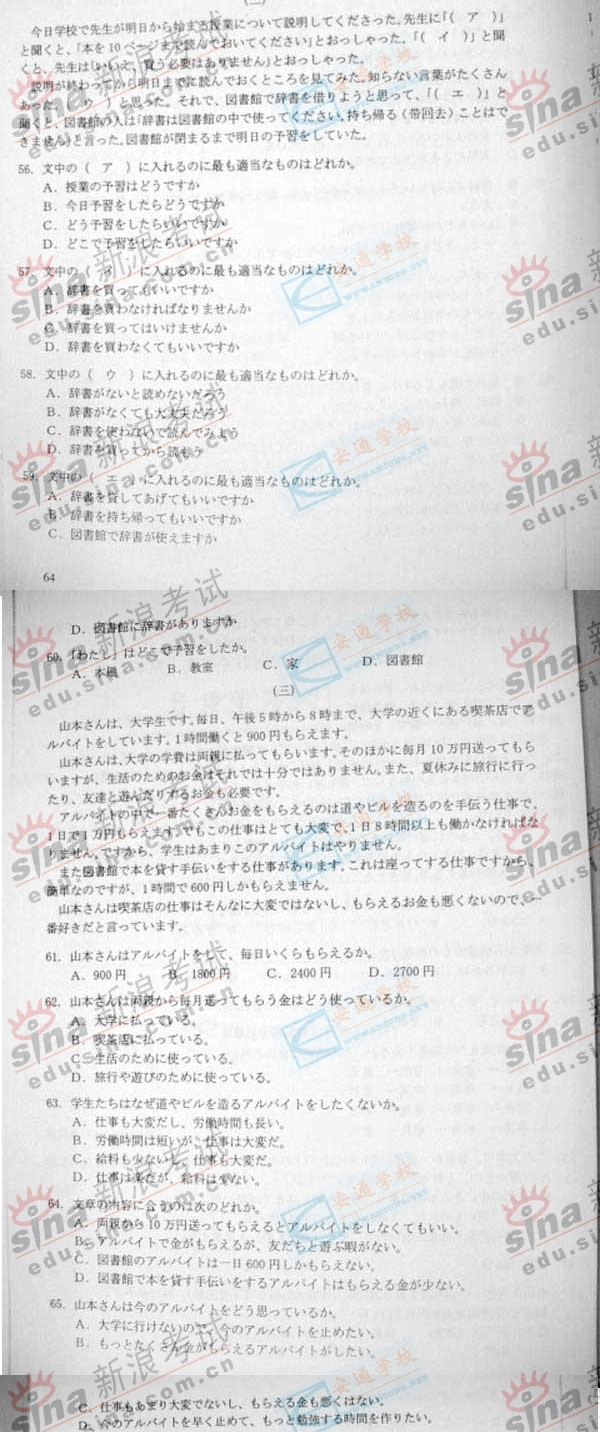 (二)
今日学校で先生が明日から始まる授業について説明してくださった。先生に「( ア )」
と聞くと、「本を10ページまで読んでおいてください」とおっしゃった。「( イ )」と聞
くと、先生は「いいえ、買う必要はありません」とおっしゃった。
説明が終わってから明日までに読んでおくところを見てみた。知らない言葉がたくさん
あった。「( ウ )」と思った。それで、図書館で辞書を借りようと思って、「( エ )」と
聞くと、図書館の人は「辞書は図書館の中で使ってください。持ち帰る(带回去)ことはで
きません」と言った。図書館が閉まるまで明日の予習をしていた。
56. 文中の( ア )に入れるのに最も適当なものはどれか。
A. 授業の予習はどうですか
B. 今日予習をしたらどうですか
C. どう予習をしたらいいですか
D. どこで予習をしたらいいですか
57. 文中の( イ )に入れるのに最も適当なものはどれか。
A. 辞書を買ってもいいですか
B. 辞書を買わなければなりませんか
C. 辞書を買ってはいけませんか
D. 辞書を買わなくてもいいですか
58. 文中の( ウ )に入れるのに最も適当なものはどれか。
A. 辞書がないと読めないだろう
B. 辞書がなくても大丈夫だろう
C. 辞書を使わないで読んでみよう
D. 辞書を買ってから読もう
59. 文中の( エ )に入れるのに最も適当なものはどれか。
A. 辞書を貸してあげてもいいですか
B. 辞書を持ち帰ってもいいですか
C. 図書館で辞書が使えますか
64
D. 図書館に辞書がありますか
60. 「わたし」はどこで予習をしたか。
A. 本棚 B. 教室 C. 家 D. 図書館
(三)
山本さんは、大学生です。毎日、午後5時から8時まで、大学の近くにある喫茶店でア
ルバイトをしています。1時間働くと900円もらえます。
山本さんは、大学の学費は両親に払ってもらいます。そのほかに毎月10万円送ってもら
いますが、生活のためのお金はそれでは十分ではありません。また、夏休みに旅行に行っ
たり、友達と遊んだりするお金も必要です。
アルバイトの中で一番たくさんお金をもらえるのは道やビルを造るのを手伝う仕事で、
1日で1万円もらえます。でもこの仕事はとても大変で、1日8時間以上も働かなければな
りません。ですから、学生はあまりこのアルバイトはやりません。
また図書館で本を貸す手伝いをする仕事があります。これは座ってする仕事ですから、
簡単なのですが、1時間で600円しかもらえません。
山本さんは喫茶店の仕事はそんなに大変ではないし、もらえるお金も悪くないので、一
番好きだと言っています。
61. 山本さんはアルバイトをして、毎日いくらもらえるか。
A. 900円 B. 1800円 C. 2400円 D. 2700円
62. 山本さんは両親から毎月送ってもらう金はどう使っているか。
A. 大学に払っている。
B. 喫茶店に払っている。
C. 生活のために使っている。
D. 旅行や遊びのために使っている。
63. 学生たちはなぜ道やビルを造るアルバイトをしたくないか。
A. 仕事も大変だし、労働時間も長い。
B. 労働時間は短いが、仕事は大変だ。
C. 給料も少ないし、仕事も大変だ。
D. 仕事は楽だが、給料は少ない。
64. 文章の内容に合うのは次のどれか。
A. 両親から10万円送ってもらえるとアルバイトをしなくてもいい。
B. アルバイトで金がもらえるが、友だちと遊ぶ暇がない。
C. 図書館のアルバイトは一日600円しかもらえない。
D. 図書館で本を貸す手伝いをするアルバイトはもらえる金が少ない。
65. 山本さんは今のアルバイトをどう思っているか。
A. 大学に行けないので、今のアルバイトを止めたい。
B. もっとたくさん金がもらえるアルバイトがしたい。
C. 仕事もあまり大変でないし、もらえる金も悪くはない。
D. 今のアルバイトを早く止めて、もっと勉強する時間を作りたい。
sina 新浪考试
edu.sina.com.cn
安通学校
WWW.ANTONG.NET